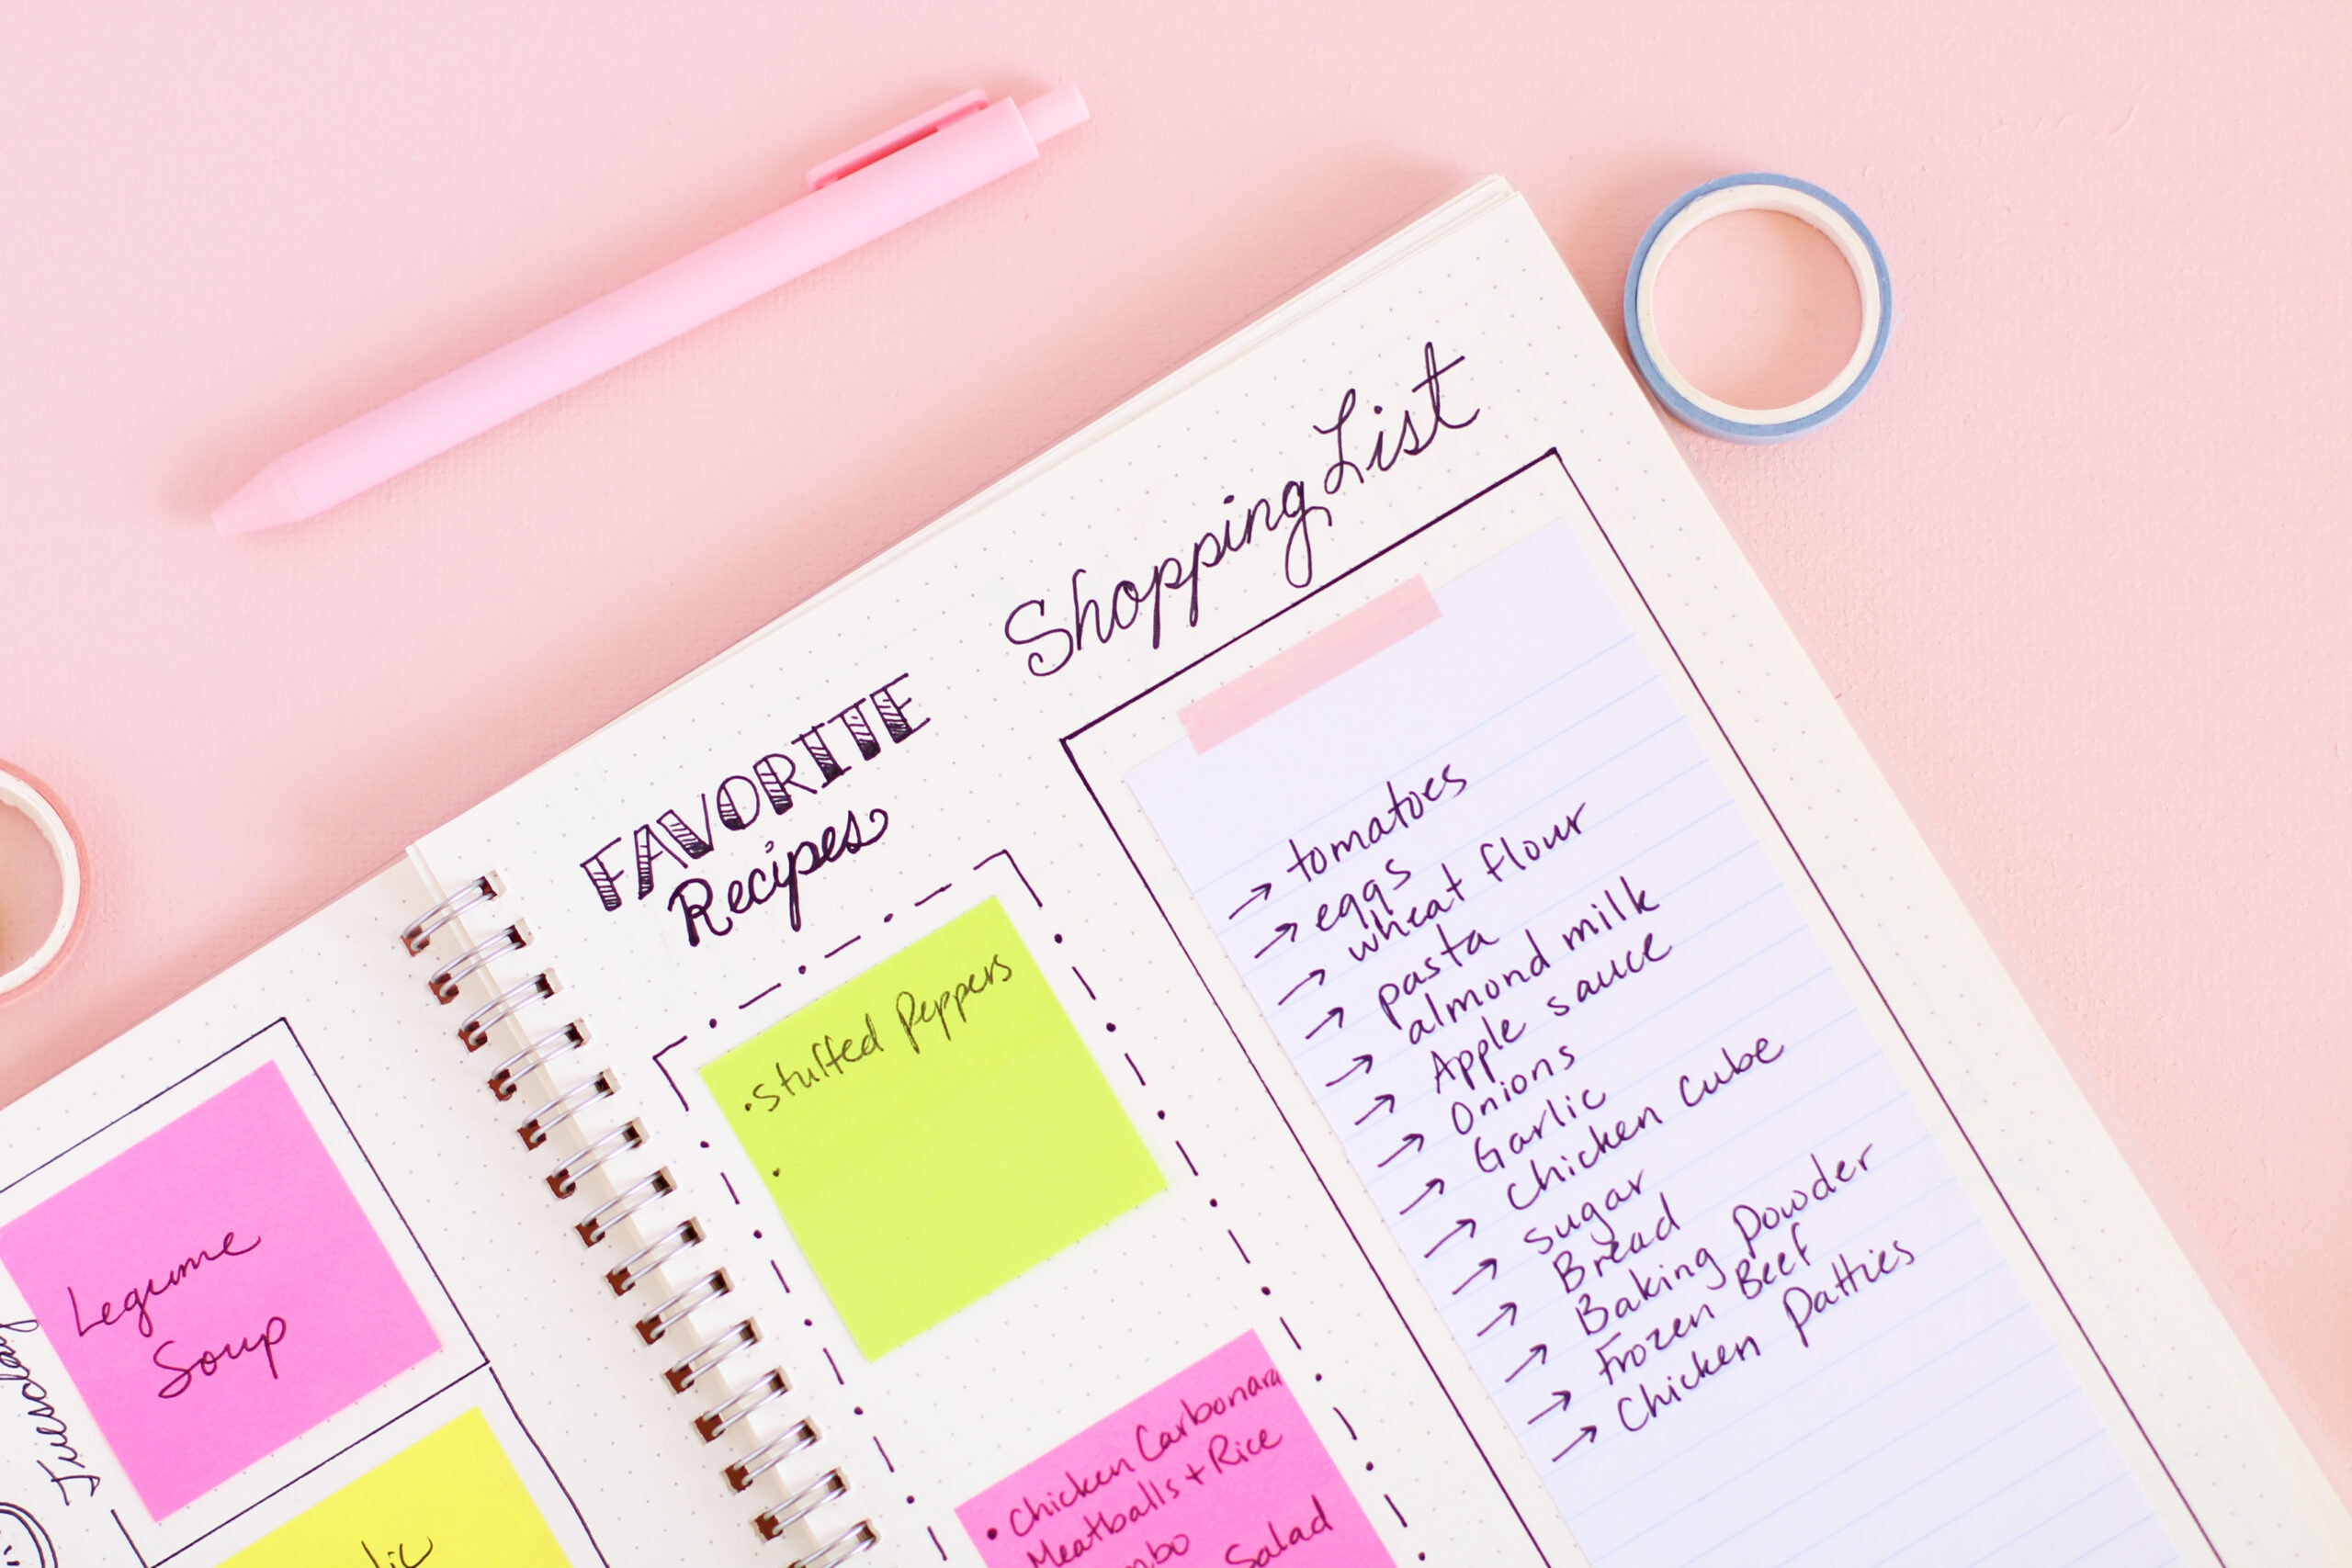 Tuesday
Legume
Soup
FAVORITE
Recipes
• stuffed Peppers
•
• Chicken Carbonara
Meatballs + Rice
Salad
Shopping List
→ tomatoes
→ eggs
→ wheat flour
→ pasta
→ almond milk
→ Apple sauce
→ Onions
→ Garlic
→ Chicken Cube
→ sugar
→ Bread
→ Baking Powder
→ Frozen Beef
→ Chicken Patties